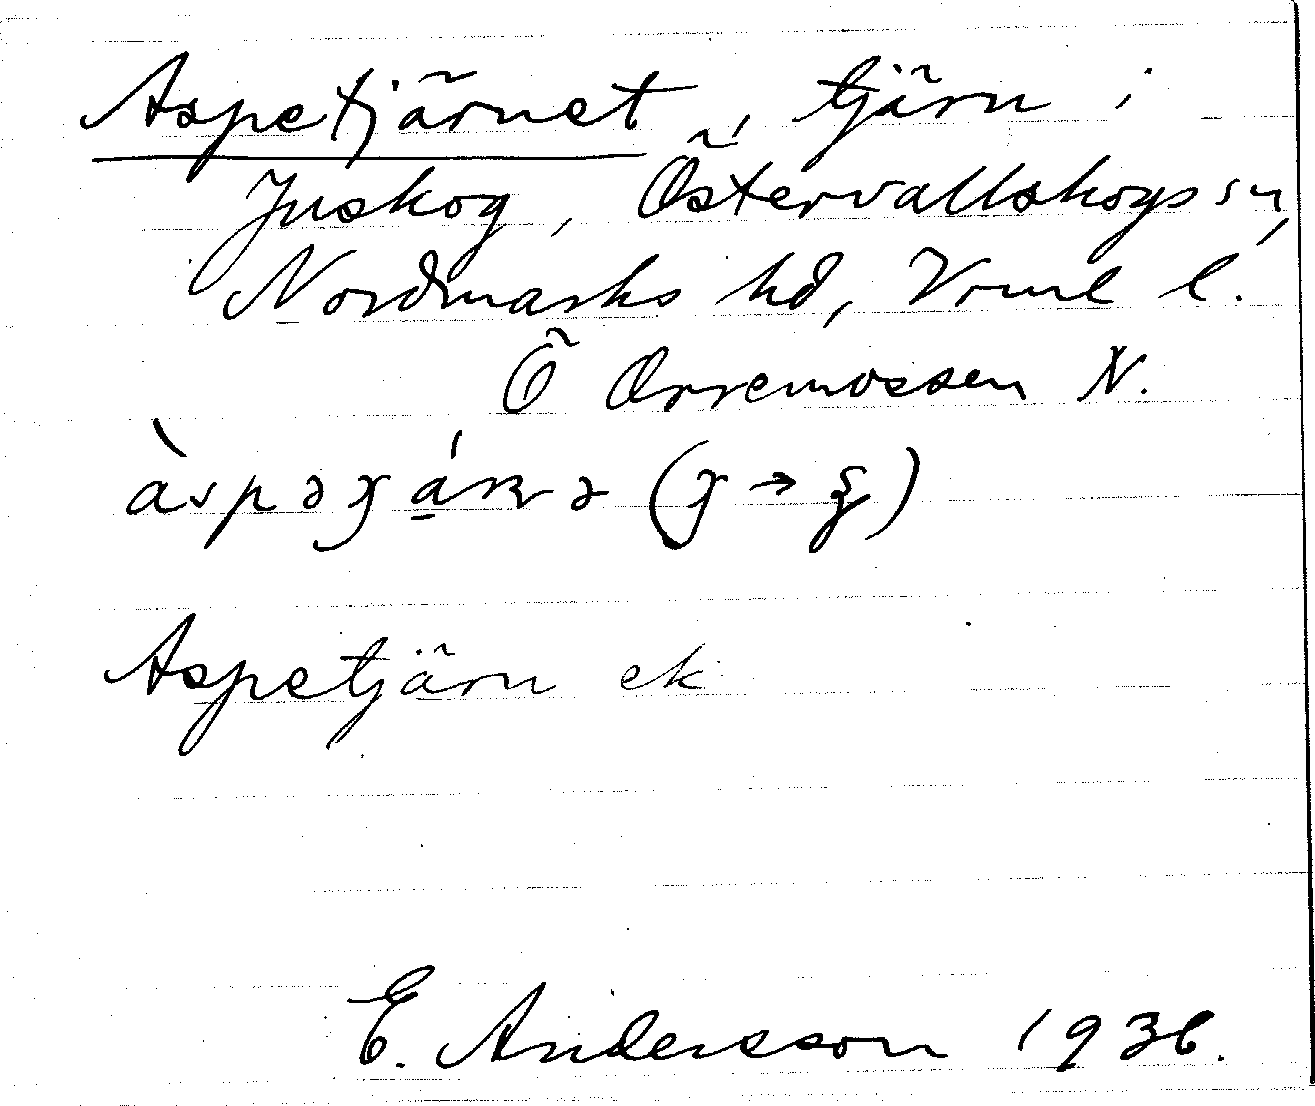 Aspetjärnet, tjärn i
Juskog, Östervallskogs sn,
Nordmarks hd, Vrml l.
Ö Orremossen N.
Aspetjärn ek
E. Andersson 1936.